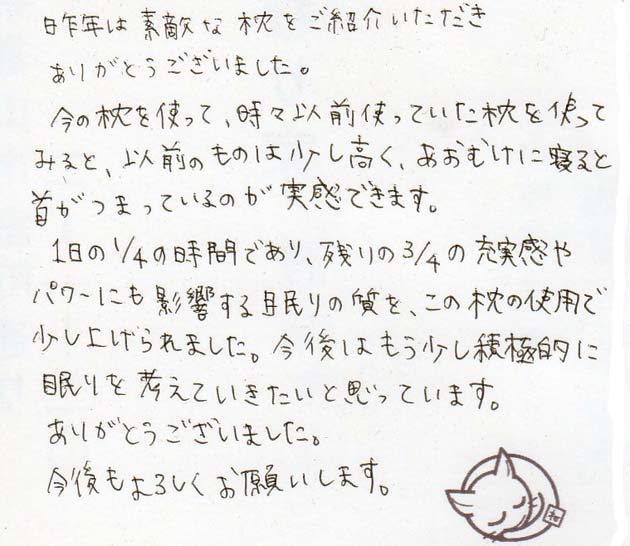 昨年は素敵な枕をご紹介いただき
ありがとうございました。
今の枕を使って、時々以前使っていた枕を使って
みると、以前のものは少し高く、あおむけに寝ると
首がつまっているのが実感できます。
1日の1/4の時間であり、残りの3/4の充実感や
パワーにも影響する眠りの質を、この枕の使用で
少し上げられました。今後はもう少し積極的に
眠りを考えていきたいと思っています。
ありがとうございました。
今後もよろしくお願いします。
和